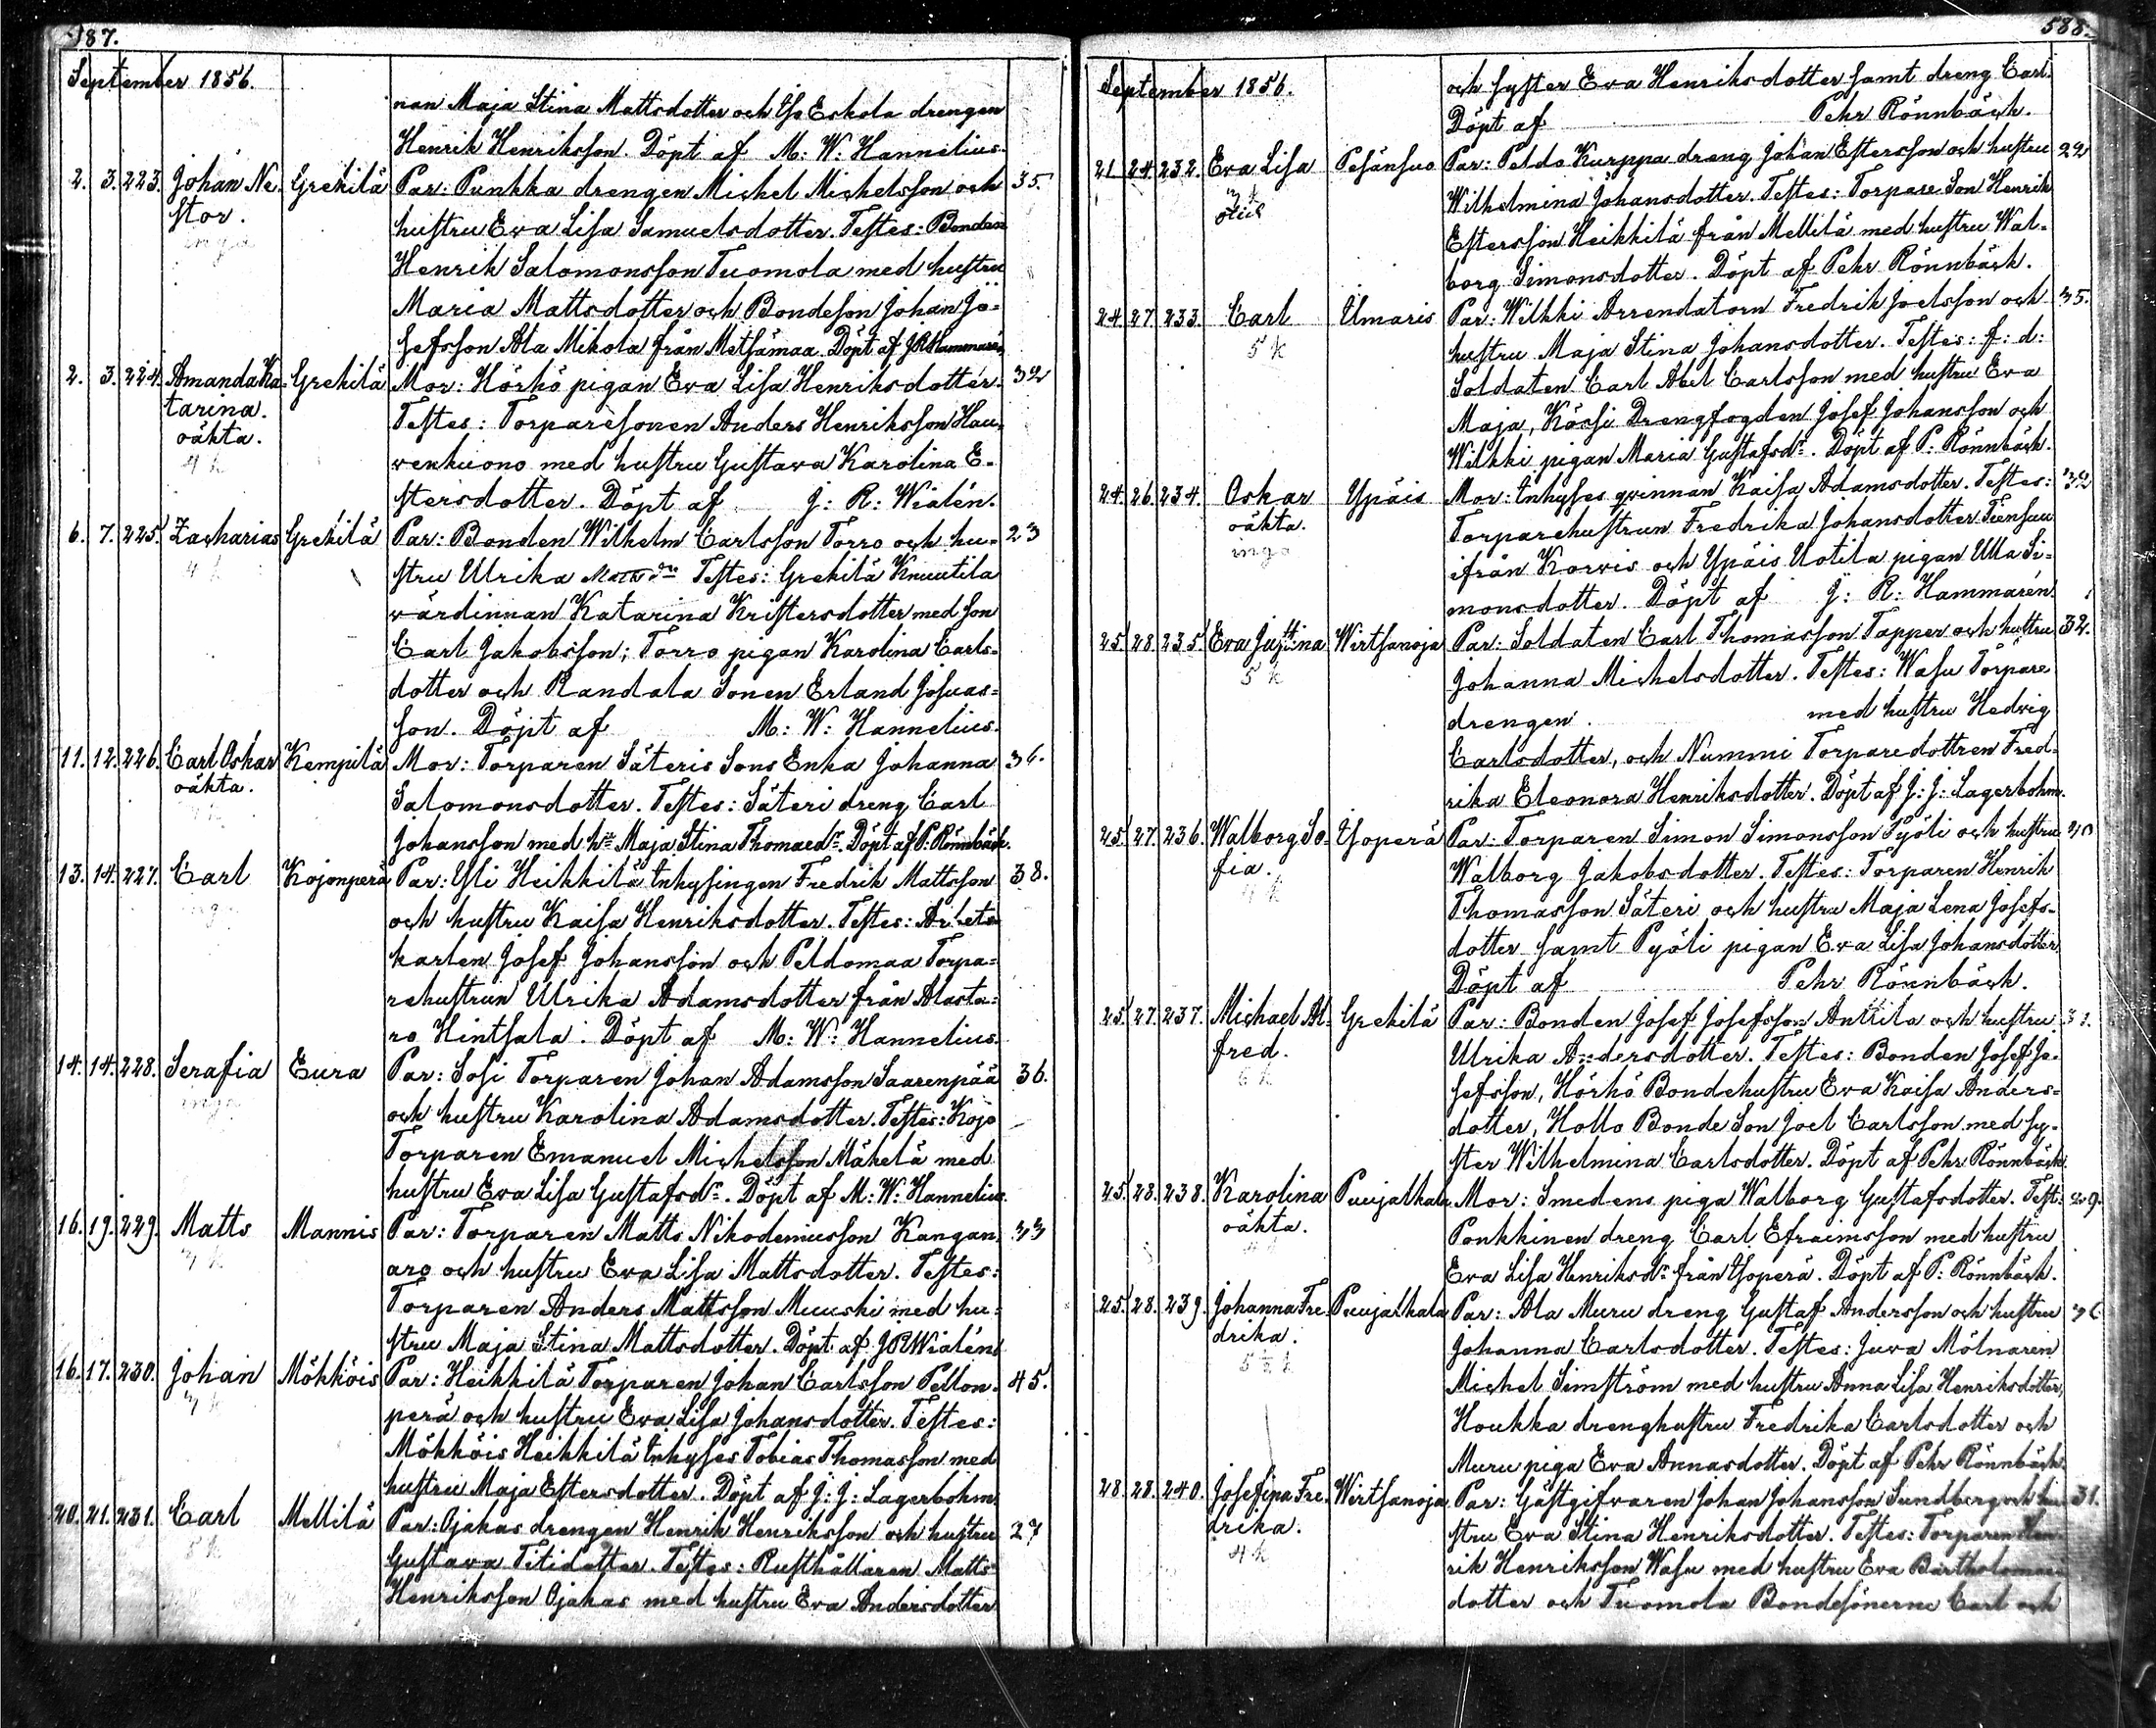 587.
September 1856.
nan Maja Stina Mattsdotter och Iso Eskola drengen
Henrik Henriksson. Döpt af M: W: Hannelius.
2. 3. 223. Johan Ne Grekilä Par: Punkka drengen Michel Michelsson och 35.
stor. hustru Eva Lisa Samuelsdotter. Testes: Bonden
inga
Henrik Salomonsson Tuomola med hustru
Maria Mattsdotter och Bondeson Johan Jo=
sefsson Ala Mikola från Metsämaa. Döpt af J R Hammarén
2. 3. 224. Amanda Ka= Grekilä Mor: Hörhö pigan Eva Lisa Henriksdotter. 32
tarina. Testes: Torparesonen Anders Henriksson Hau,
oäkta.
4 k
venkuono med hustru Gustava Karolina E=
stersdotter. Döpt af J: R: Wialén.
6. 7. 225. Zacharias Grekilä Par: Bonden Wilhelm Carlsson Torro och hu= 23
4 k stru Ulrika Testes: Grekilä Knuutila
värdinnan Katarina Kristersdotter med son
Carl Jakobsson; Torro pigan Karolina Carls=
dotter och Randala Sonen Erland Josuas=
son. Döpt af M: W: Hannelius.
11. 12. 226. Carl Oskar Kempilä Mor: Torparen Säteris Sons Enka Johanna 36.
oäkta. Salomonsdotter. Testes: Säteri dreng Carl
Johansson med hu Maja Stina Thomaedr. Döpt af P: Rönnbäck.
13. 14. 227. Carl Kojonperä Par: Yli Heikkilä Inhysingen Fredrik Mattsson 38.
och hustru Kaisa Henriksdotter. Testes: Arbets
karlen Josef Johansson och Peldomaa Torpa=
rehustrun Ulrika Adamsdotter från Alasta=
ro Hintsala. Döpt af M: W: Hannelius.
14. 14. 228. Serafia Eura Par: Sosi Torparen Johan Adamsson Saarenpää 36.
inga och hustru Karolina Adamsdotter. Testes: Kojo
Torparen Emanuel Michelsson Mäkelä med
hustru Eva Lisa Gustafsdr. Döpt af M: W: Hannelius.
16. 19. 229. Matts Mannis Par: Torparen Matts Nikodemusson Kangan, 33
3 k aro och hustru Eva Lisa Mattsdotter. Testes:
Torparen Anders Mattsson Muuski med hu=
stru Maja Stina Mattsdotter. Döpt af J R Wialén
16. 17. 230. Johan Mökköis Par: Heikkilä Torparen Johan Carlsson Pellon= 45.
3 k perä och hustru Eva Lisa Johansdotter. Testes:
Mökköis Heikkilä Inhyses Tobias Thomasson med
hustru Maja Estersdotter. Döpt af J: J: Lagerbohm.
20. 21. 231. Carl Mellilä Par: Ojakas drengen Henrik Henriksson och hustru 27
5 k Gustava Titidotter. Testes: Rusthållaren Matts
Henriksson Ojakas med hustru Eva Andersdotter
588.
September 1856.
och syster Eva Henriksdotter samt dreng Carl.
Döpt af Pehr Rönnbäck.
21 24. 232. Eva Lisa Pesänsuo Par: Peldo Kurppa dreng Johan Estersson och hustru 22
3 k Wilhelmina Johansdotter. Testes: Torpare Son Henrik
Estersson Heikkilä från Mellilä med hustru Wal=
borg Simonsdotter. Döpt af Pehr Rönnbäck.
24. 27. 233. Carl Ilmaris Par: Wilkki Arrendatorn Fredrik Joelsson och 35.
5 k hustru Maja Stina Johansdotter. Testes: f: d:
Soldaten Carl Abel Carlsson med hustru Eva
Maja, Köösi Drengfogden Josef Johansson och
Wilkki pigan Maria Gustafsdr. Döpt af P: Rönnbäck.
24. 26. 234. Oskar Ypäis Mor: Inhyses qvinnan Kaisa Adamsdotter. Testes: 32
oäkta. Torparehustrun Fredrika Johansdotter Tiensuu
inga ifrån Korvis och Ypäis Uotila pigan Ulla Si=
monsdotter. Döpt af J: R: Hammarén.
25. 28. 235. Eva Justina Wirtsanoja Par: Soldaten Carl Thomasson Tapper och hustru 32.
5 k Johanna Michelsdotter. Testes: Wasu Torpare
drengen med hustru Hedvig
Carlsdotter, och Nummi Torparedottren Fred=
rika Eleonora Henriksdotter. Döpt af J: J: Lagerbohm.
25. 27. 236. Walborg So= Isoperä Par: Torparen Simon Simonsson Pyöli och hustru 40
fia. Walborg Jakobsdotter. Testes: Torparen Henrik
4 k
Thomasson Säteri och hustru Maja Lena Josefs=
dotter samt Pyöli pigan Eva Lisa Johansdotter.
Döpt af Pehr Rönnbäck.
25. 27. 237. Michael Al= Grekilä Par: Bonden Josef Josefsson Anttila och hustru 31.
fred. Ulrika Andersdotter. Testes: Bonden Josef Jo=
6 k sefsson, Hörhö Bondehustru Eva Kaisa Anders=
dotter, Hollo Bonde Son Joel Carlsson med sy=
ster Wilhelmina Carlsdotter. Döpt af Pehr Rönnbäck.
25. 28. 238. Karolina Puujalkala Mor: Smedens piga Walborg Gustafsdotter. Test: 29.
oäkta. Ponkkinen dreng Carl Efraimsson med hustru
Eva Lisa Henriksdr från Isoperä. Döpt af P: Rönnbäck.
25. 28. 239. Johanna Fre Puujalkala Par: Ala Muru dreng Gustaf Andersson och hustru 36
drika. Johanna Carlsdotter. Testes: Juva Mölnaren
Michel Simström med hustru Anna Lisa Henriksdotter,
Houkka drenghustru Fredrika Carlsdotter och
Muru piga Eva Annasdotter. Döpt af Pehr Rönnbäck.
28. 28. 240. Josefina Fre= Wirtsanoja Par: Gästgifvaren Johan Johansson Sundberg och hu 31.
drika. stru Eva Stina Henriksdotter. Testes: Torparen Hen
4 k rik Henriksson Wasu med hustru Eva Bartholomei
dotter och Tuomola Bondesönerne Carl och